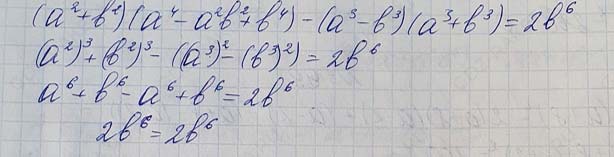 (a²+b²)(a⁴-a²b²+b⁴)-(a³-b³)(a³+b³)=2b⁶
(a²)³+(b²)³-((a³)²-(b³)²)=2b⁶
a⁶+b⁶-a⁶+b⁶=2b⁶
2b⁶=2b⁶